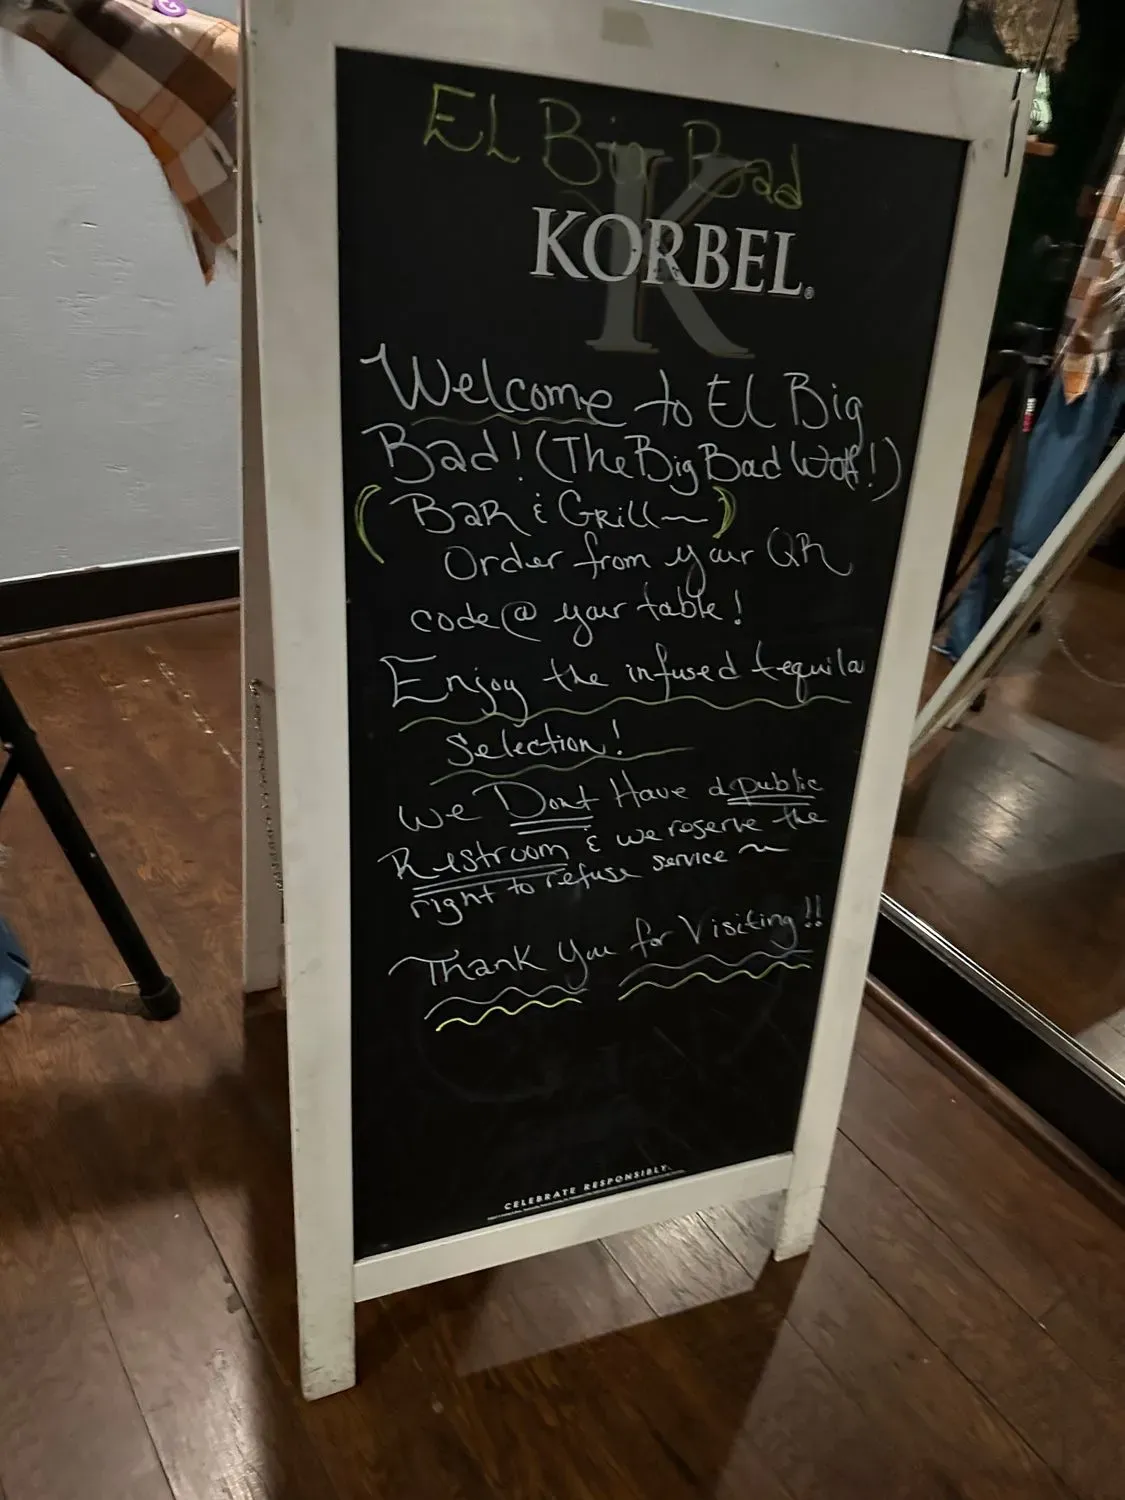 EL Big Bad
K
KORBEL®
Welcome to El Big
Bad! (The Big Bad Wolf!)
(Bar & Grill~)
Order from your QR
code @ your table!
Enjoy the infused tequila
selection!
We Dont Have a public
Restroom & we reserve the
right to refuse service ~
Thank You for Visiting!!
CELEBRATE RESPONSIBLY.
G